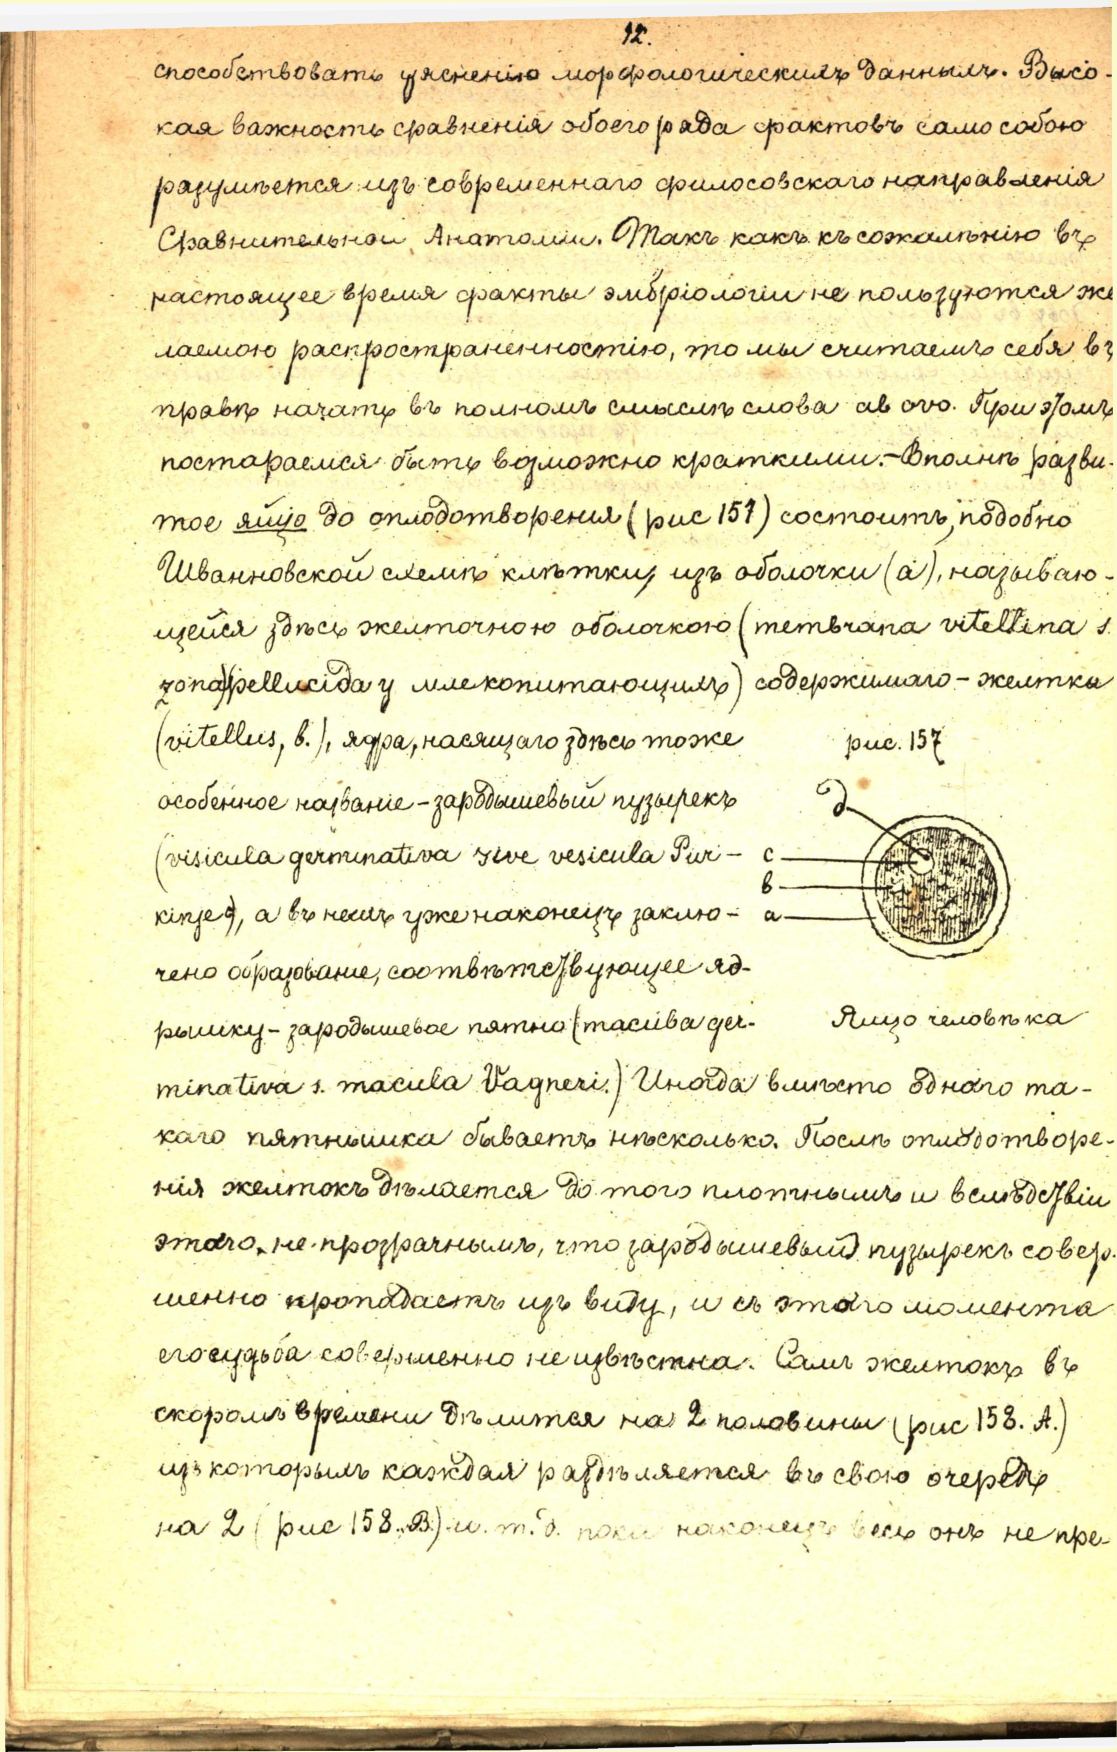 12.
способствовать уясненію морфологическихъ данныхъ. Высо-
кая важность сравненія обоего рада фактовъ само собою
разумѣется изъ современнаго филосовскаго направленія
Сравнительной Анатоміи. Такъ какъ къ сожалѣнію въ
настоящее время факты эмбріологіи не пользуются же
лаемою распространенностію, то мы считаемъ себя въ
правѣ начать въ полномъ смыслѣ слова ab ovo. При этомъ
постараемся быть возможно краткими.-Вполнѣ разви-
тое яйцо до оплодотворения (рис 157) состоитъ, подобно
Шванновской схемѣ клѣтки, изъ оболочки (а), называю-
щейся здѣсь желточною оболочкою (membrana vitellina s.
zona pellucida у млекопитающихъ) содержимаго - желтка
(vitellus, в.), ядра, насящаго здѣсь тоже
рис. 157
особенное название - зародышевый пузырекъ
д
(visicula germinativa sive vesicula Pur-
с
в
kinje), а въ немъ уже наконецъ заклю-
а
чено образование, соотвѣтствующее яд-
рышку - зародышевое пятно (macula ger-
Яицо человѣка
minativa s. macula Vagneri.) Иногда вмѣсто однаго та-
каго пятнышка бываетъ нѣсколько. Послѣ оплодотворе-
нія желтокъ дѣлается до того плотнымъ и вслѣдствіи
этаго не прозрачнымъ, что зародышевый пузырекъ совер-
шенно пропадаетъ изъ виду, и съ этаго момента
его судьба совершенно неизвѣстна. Самъ желтокъ въ
скоромъ времени дѣлится на 2 половины (рис 158. А.)
изъ которыхъ каждая раздѣляется въ свою очередь
на 2 (рис 158. В.) и. т. д. пока наконецъ весь онъ не пре-